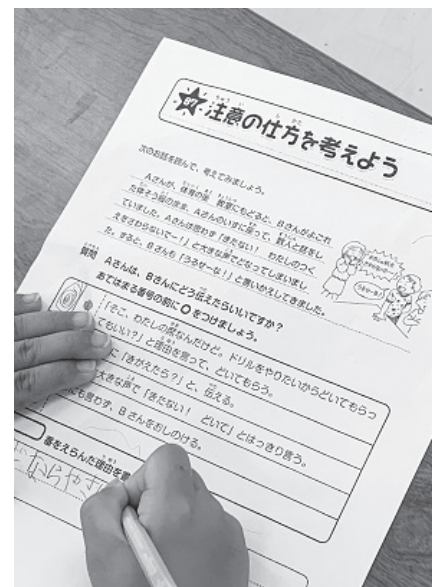 注意の仕方を考えよう
次のお話を読んで、考えてみましょう。
Aさんが、体育の後、教室にもどると、Bさんがよごれ
た体そう服のまま、Aさんのいすに座って、数人と話をし
ていました。Aさんは思わず「きたない! わたしのつく
えをさわらないでー!」と大きな声でどなってしまいまし
た。すると、Bさんも「うるせーな!」と言いかえしてきました。
質問 Aさんは、Bさんにどう伝えたらいいですか?
あてはまる番号の前に○をつけましょう。
「そこ、わたしの席なんだけど。ドリルをやりたいからどいてもらっ
てもいい?」と理由を言って、どいてもらう。
に「きがえたら?」と、伝える。
大きな声で「きたない! どいて」とはっきり言う。
にも言わず、Bさんをおしのける。
番をえらんだ理由を書